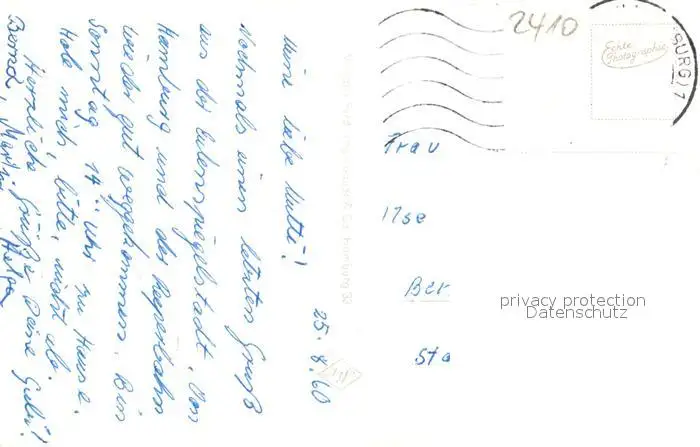 25.8.60
Meine liebe Mutti!
Nochmals einen letzten Gruß
aus der Eulenspiegelstadt. Von
Hamburg und der Reeperbahn
wieder gut weggekommen. Bin
Sonntag 14 Uhr zu Hause.
Hole mich bitte, nicht ab.
Herzliche Grüße Deine
Bernd,
2410
SBURG) 7
Echte
Photographie
Frau
Ilse
Ber
Sta
privacy protection
Datenschutz